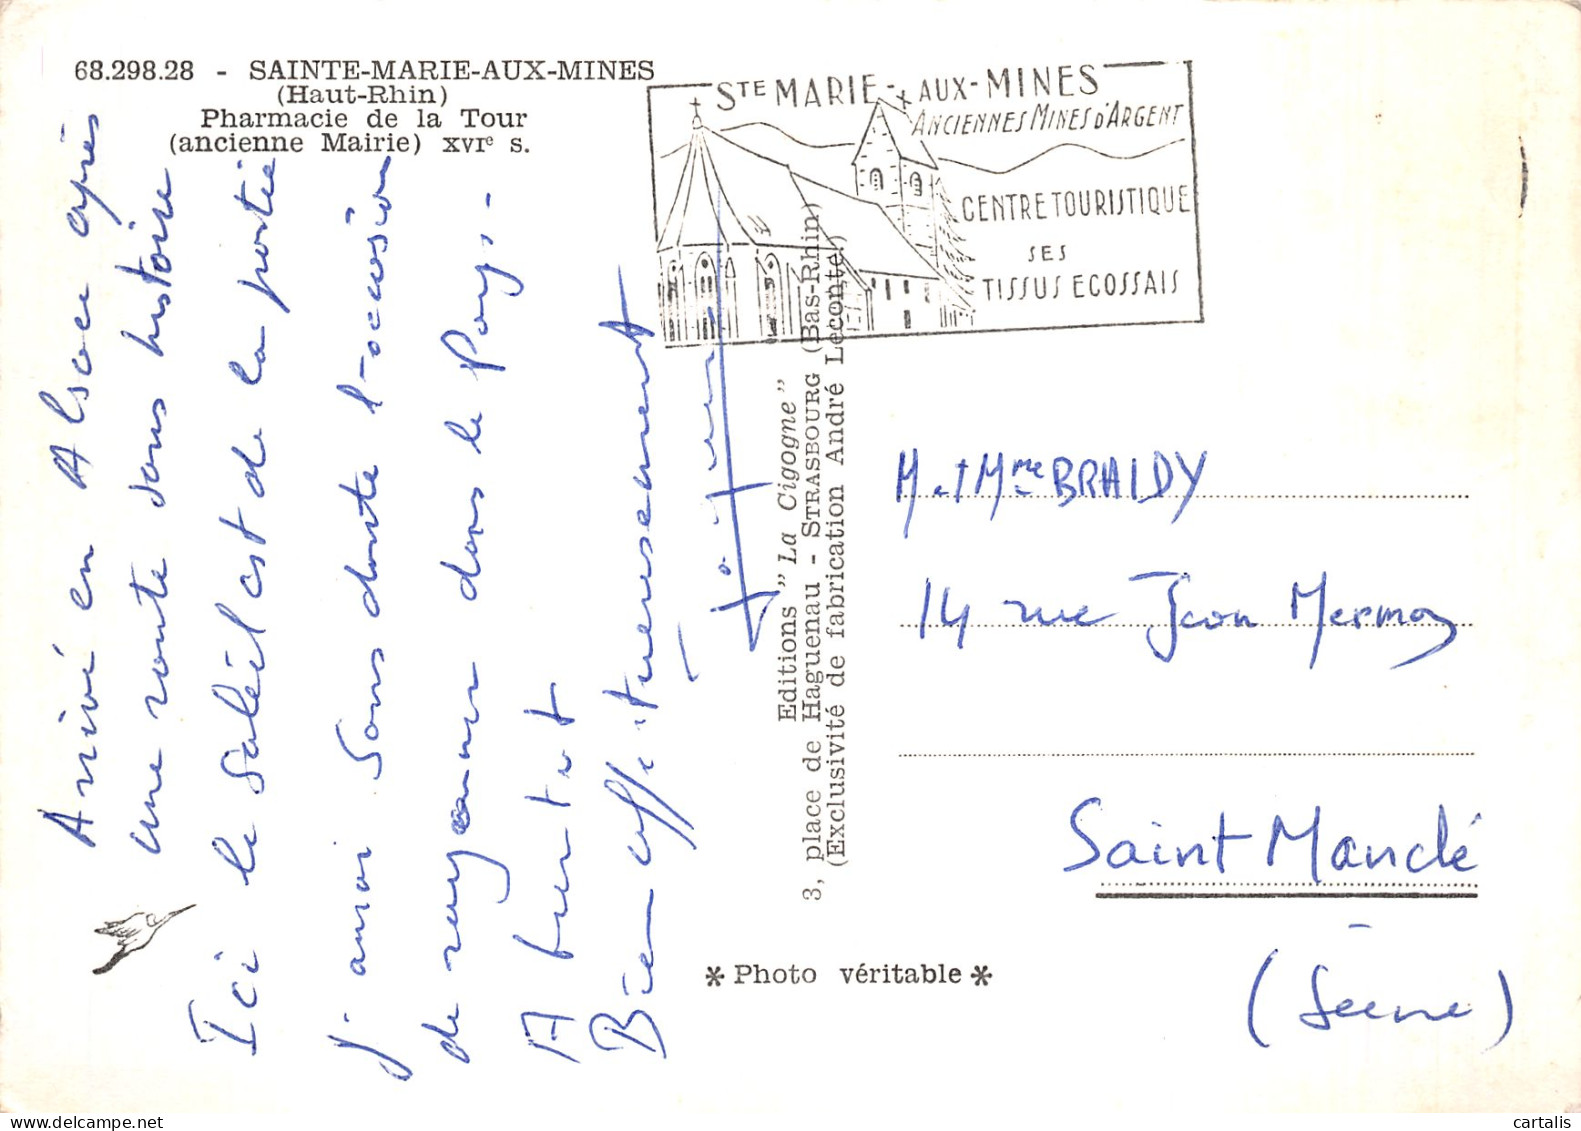 68.298.28 - SAINTE-MARIE-AUX-MINES
(Haut-Rhin)
Pharmacie de la Tour
(ancienne Mairie) XVIe s.
STE MARIE-AUX-MINES
ANCIENNES MINES D'ARGENT
CENTRE TOURISTIQUE
SES
TISSUS ECOSSAIS
Arrivé en Alsace après
une route sans histoire
Ici le soleil est de la partie
j'aurai sans doute l'occasion
de rayonner dans le Pays.
A bientôt
Bien affectueusement
Editions "La Cigogne"
3, place de Haguenau - STRASBOURG (Bas-Rhin)
(Exclusivité de fabrication André Leconte)
M et Mme BRAIDY
14 rue Jean Mermoz
Saint Mandé
(Seine)
* Photo véritable *
cartalis